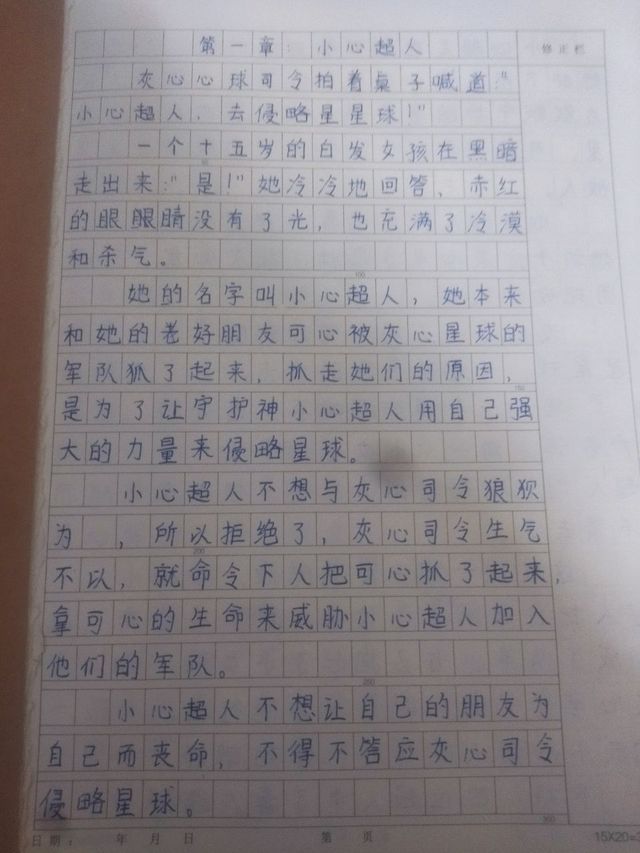 第一章：小心超人
修正栏
灰心心球司令拍着桌子喊道："
小心超人，去侵略星星球！"
一个十五岁的白发女孩在黑暗
走出来："是！"她冷冷地回答，赤红
的眼眼睛没有了光，也充满了冷漠
和杀气。
100
她的名字叫小心超人，她本来
和她的老好朋友可心被灰心星球的
军队狐了起来，抓走她们的原因，
是为了让守护神小心超人用自己强
大的力量来侵略星球。
小心超人不想与灰心司令狼狈
为，所以拒绝了，灰心司令生气
200
不以，就命令下人把可心抓了起来，
拿可心的生命来威胁小心超人加入
他们的军队。
小心超人不想让自己的朋友为
自己而丧命，不得不答应灰心司令
侵略星球。
300
日期： 年 月 日 第 页 15X20=3